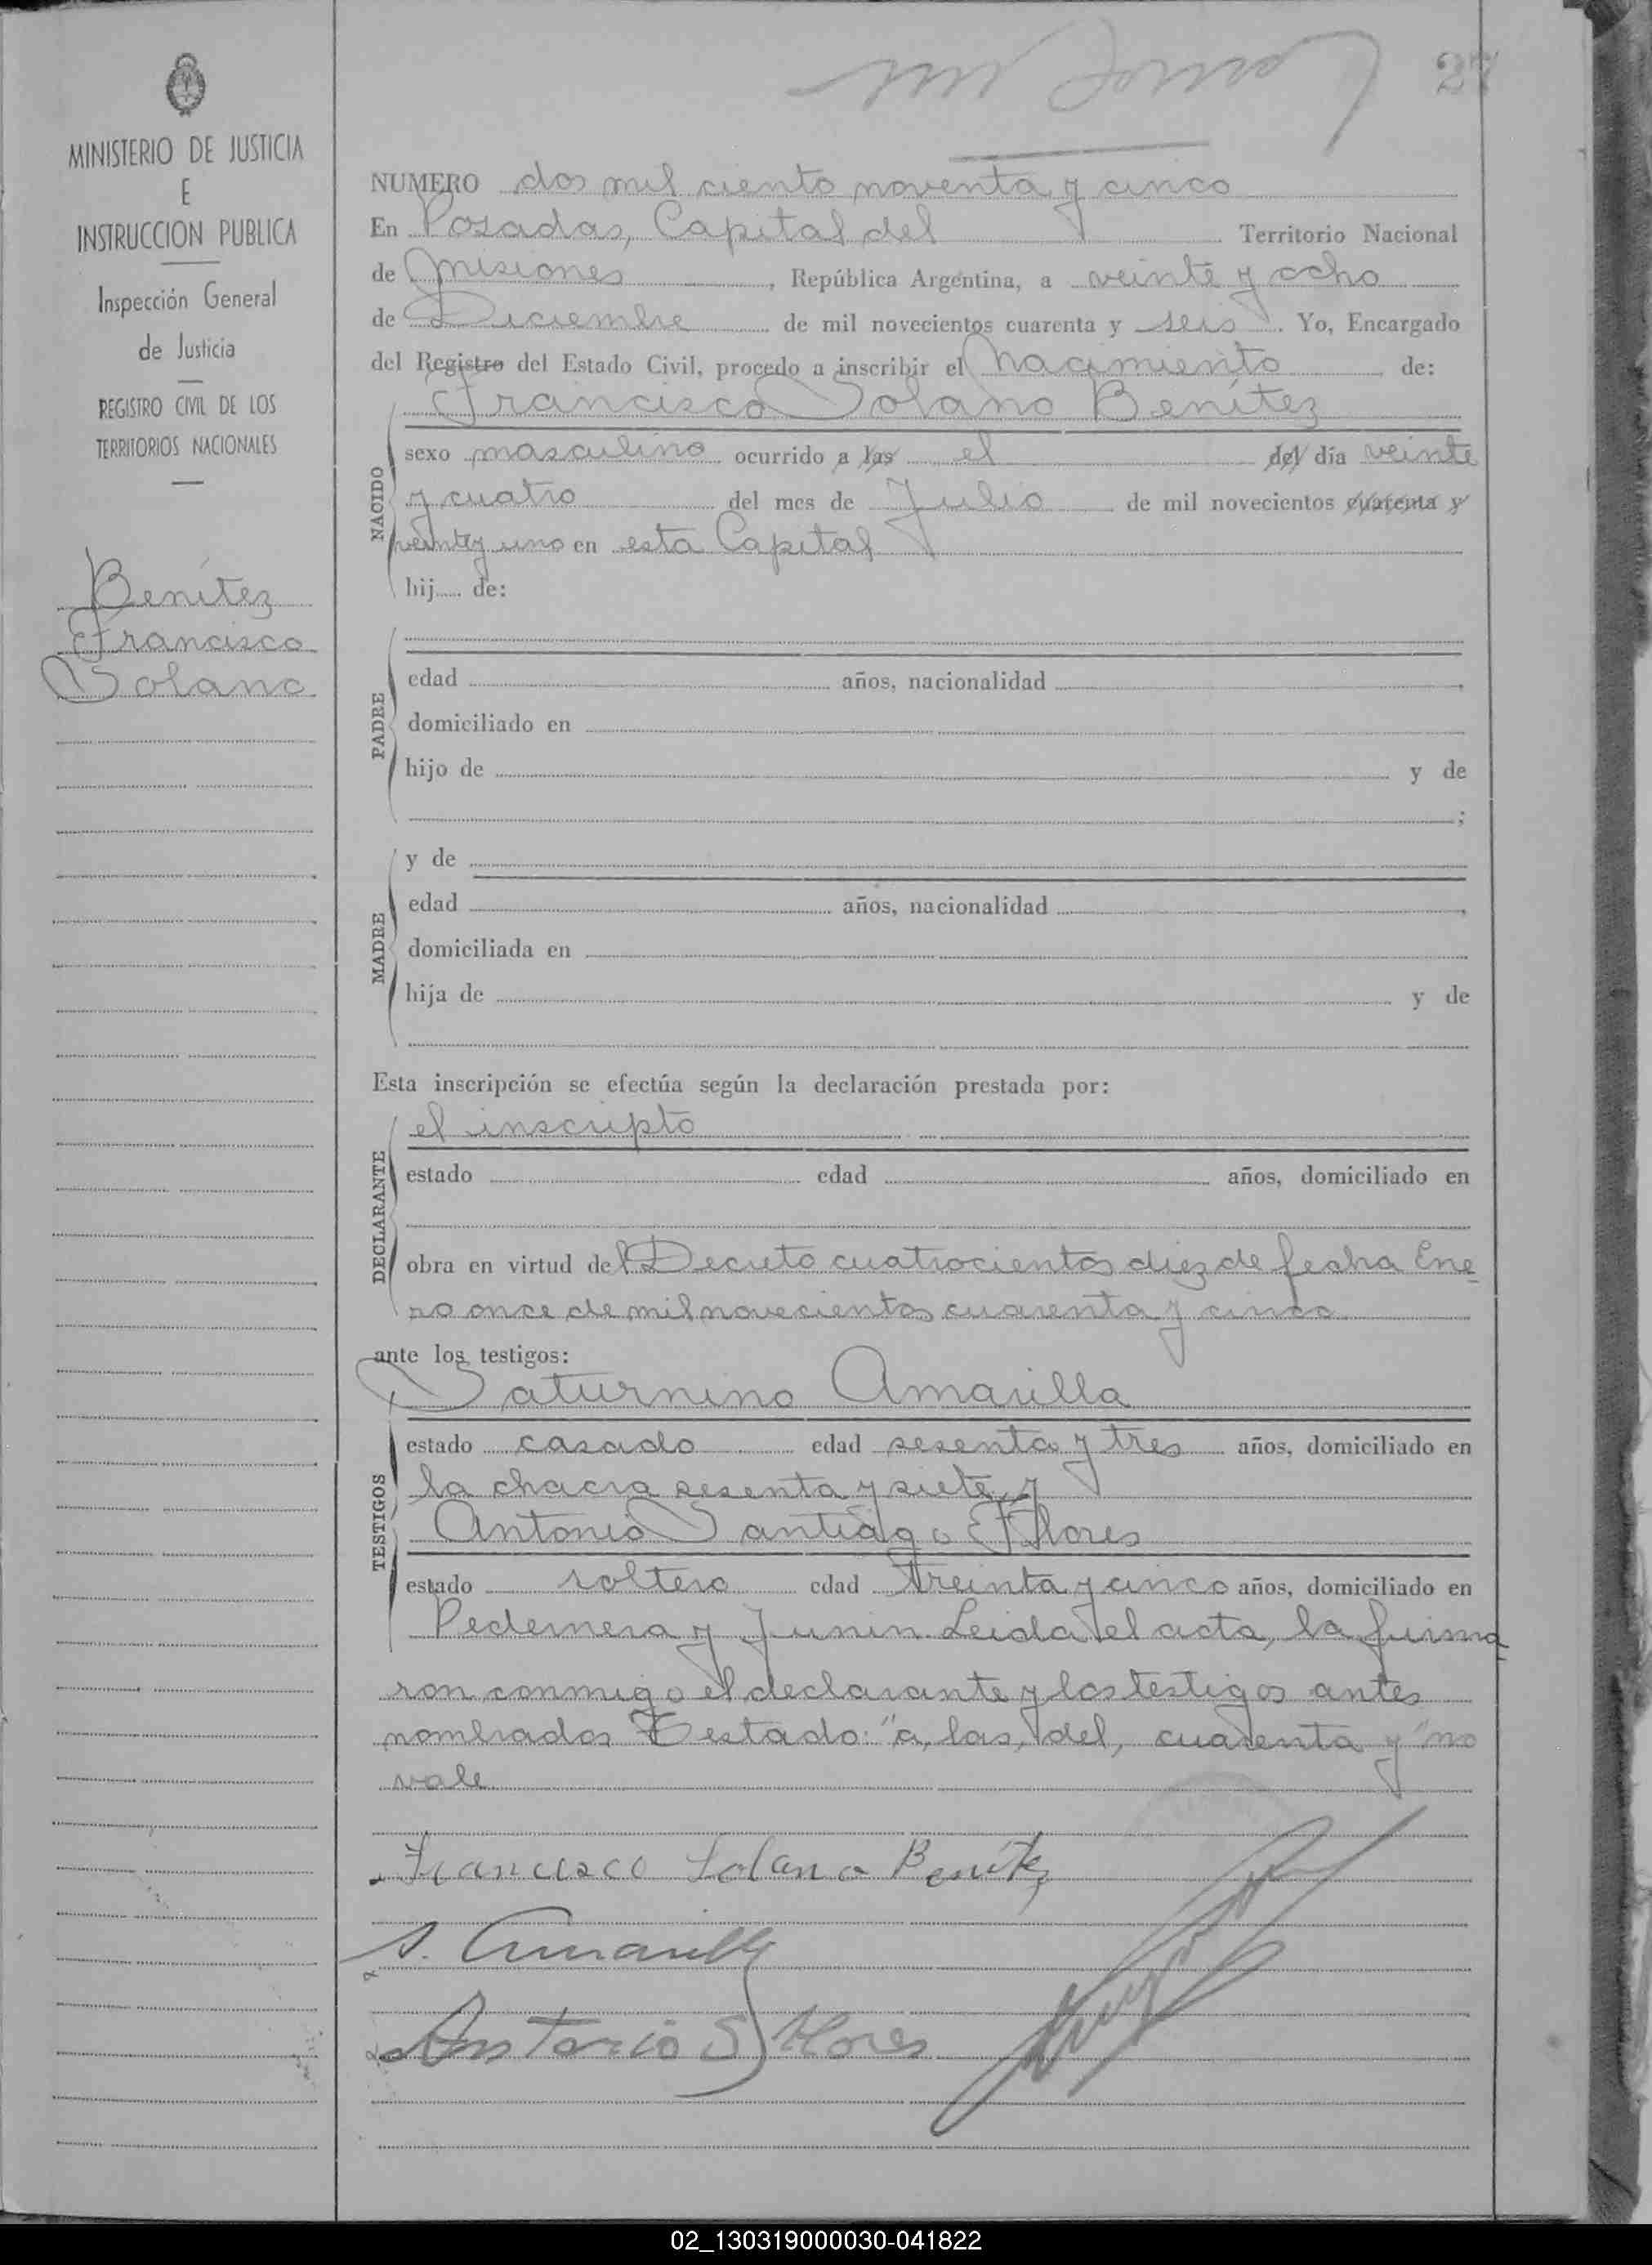 27
MINISTERIO DE JUSTICIA
E
INSTRUCCION PUBLICA
Inspección General
de Justicia
REGISTRO CIVIL DE LOS
TERRITORIOS NACIONALES
Benítez
Francisco
Solano
NUMERO dos mil ciento noventa y cinco
En Posadas, Capital del Territorio Nacional
de Misiones, República Argentina, a veinte y ocho
de Diciembre de mil novecientos cuarenta y seis. Yo, Encargado
del Registro del Estado Civil, procedo a inscribir el Nacimiento de:
Francisco Solano Benítez
NACIDO
sexo masculino ocurrido a las el del día veinte
y cuatro del mes de Julio de mil novecientos cuarenta y
veinte y uno en esta Capital
hij de:
PADRE
edad años, nacionalidad ,
domiciliado en
hijo de y de
;
MADRE
y de
edad años, nacionalidad ,
domiciliada en
hija de y de
Esta inscripción se efectúa según la declaración prestada por:
DECLARANTE
el inscripto
estado edad años, domiciliado en
obra en virtud del Decreto cuatrocientos diez de fecha Ene
ro once de mil novecientos cuarenta y cinco
ante los testigos:
TESTIGOS
Saturnino Amarilla
estado casado edad sesenta y tres años, domiciliado en
la chacra sesenta y siete y
Antonio Santiago Flores
estado soltero edad treinta y cinco años, domiciliado en
Pedernera y Junin. Leida el acta, la firma
ron conmigo el declarante y los testigos antes
nombrados Testado: "a, las, del, cuarenta y" no
vale
Francisco Solano Benítez
S. Amarilla
Antonio S Flores
02_130319000030-041822